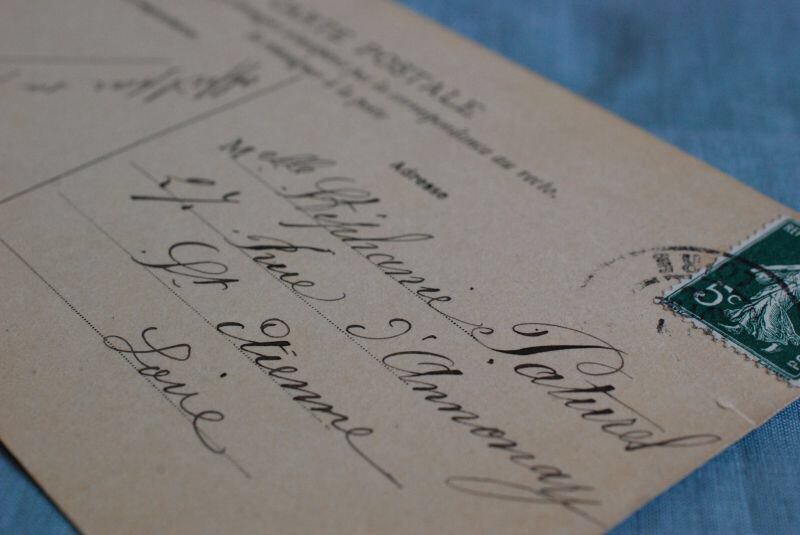 CARTE POSTALE
correspondance au recto.
à la poste
Adresse
Melle Stéphanie Paturel
27 Rue d'Annonay
St Etienne
Loire
5c